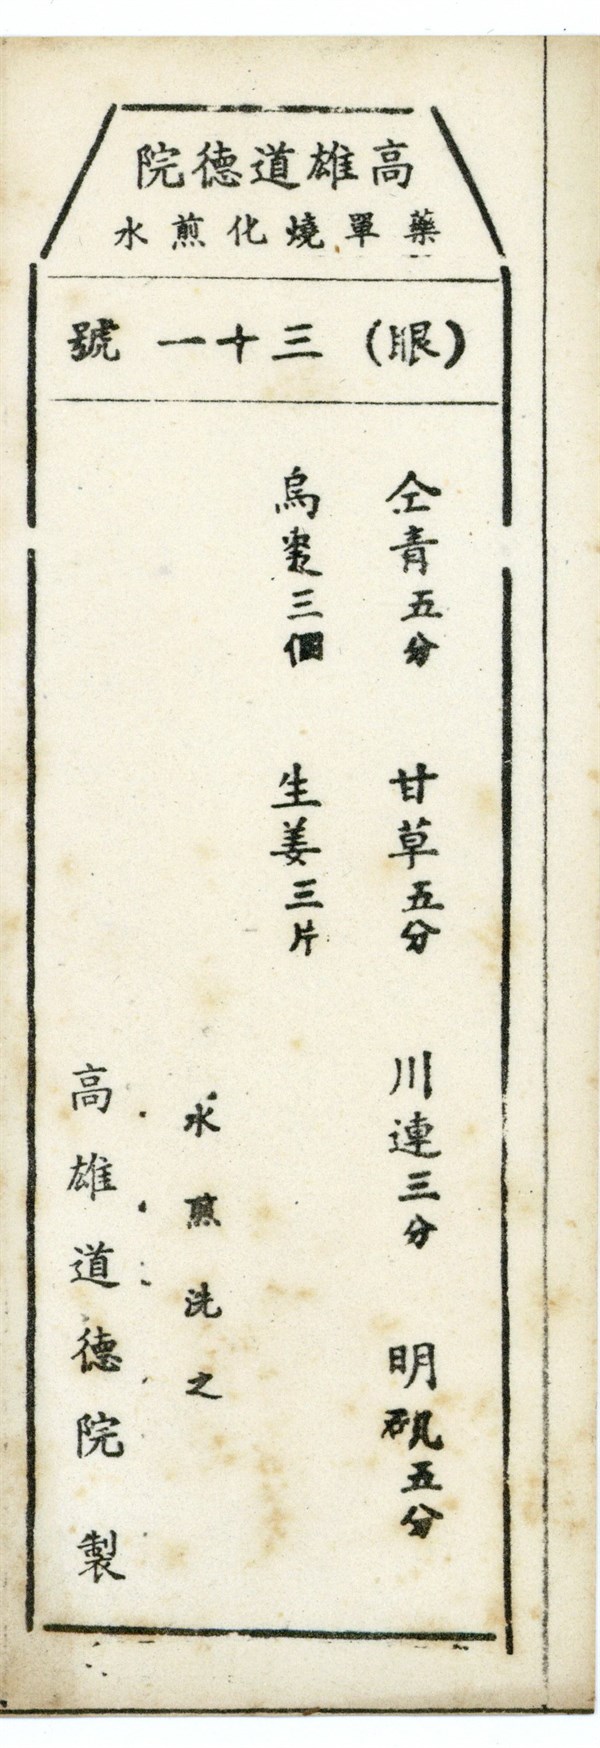 高雄道德院
藥單燒化煎水
(眼) 三十一號
仝青五分 甘草五分 川連三分 明矾五分
烏枣三個 生姜三片
水煎洗之
高雄道德院製